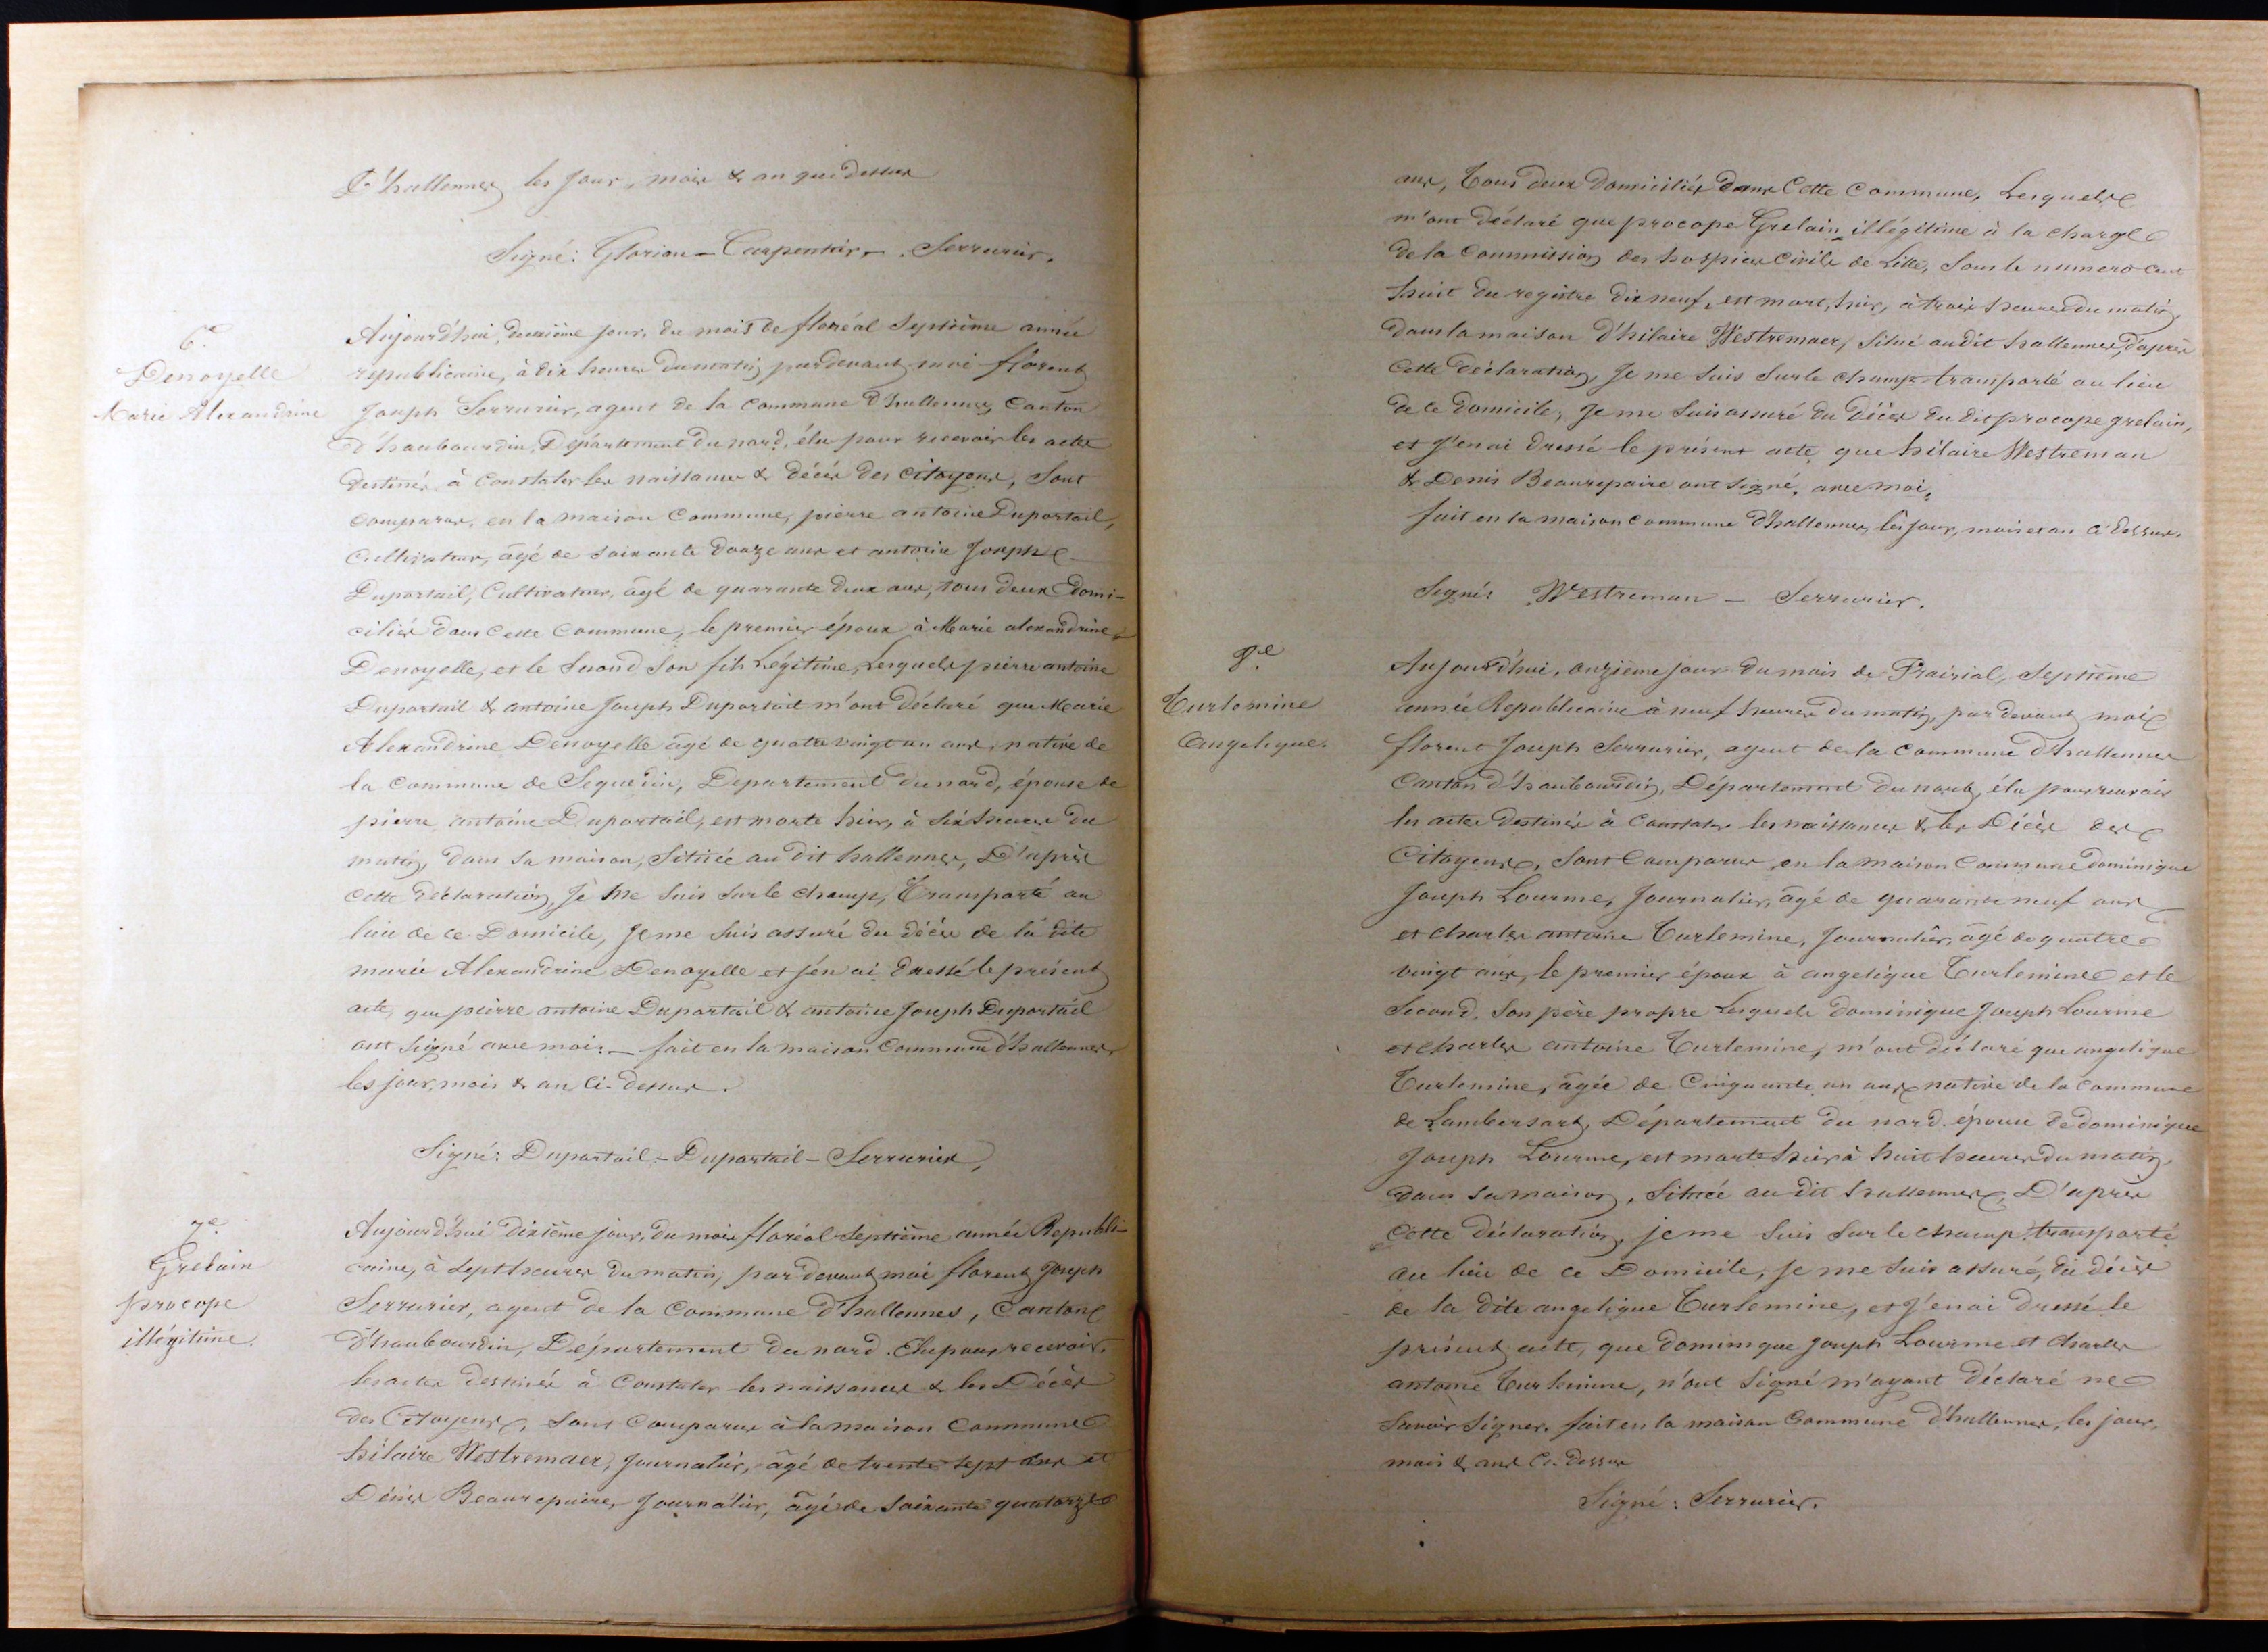 D'hallennes les jour, mois & an que dessus
Signé: Florian - Carpentier - Serrurier.
6.e
Denoyelle
Marie Alexandrine
Aujourd'hui, deuxième jour, du mois de floréal Septième année
républicaine, à dix heures du matin pardevant moi florent
Joseph Serrurier, agent de la Commune D'hallennes, Canton
d'haubourdin, Département du nord, élu pour recevoir les actes
destinés à Constater les naissances & décès des citoyens, sont
comparus, en la maison Commune, pierre antoine Duportail,
Cultivateur, âgé de soixante douze ans et antoine Joseph
Duportail, Cultivateur, âgé de quarante deux ans, tous deux domi-
ciliés dans cette Commune, le premier époux à Marie alexandrine
Denoyelle, et le Second son fils Légitime, Lesquels pierre antoine
Duportail & antoine Joseph Duportail m'ont Déclaré que Marie
Alexandrine Denoyelle âgé de quatre vingt un ans, native de
la Commune de Sequedin, Departement du nord, épouse de
pierre antoine Duportail, est morte hier, à six heures du
matin, dans sa maison, Située au dit hallennes, D'après
cette déclaration, Je me suis sur le champ, Transporté au
lieu de ce Domicile, Je me suis assuré du décès de la dite
marie Alexandrine Denoyelle et j'en ai dressé le présent
acte, que pierre antoine Duportail & antoine Joseph Duportail
ont signé avec moi: - fait en la maison Commune d'hallennes
les jour, mois & an Ci-dessus.
Signé: Duportail - Duportail - Serrurier,
7.e
Grelain
procope
illégitime.
Aujourd'hui dixième jour, du mois floréal Septième année Republi-
caine, à sept heures du matin, par devant moi florent Joseph
Serrurier, agent de la Commune d'hallennes, Canton
d'haubourdin, Département du nord. Elu pour recevoir.
les actes destinés à Constater les naissances & les Décès
des Citoyens, sont Comparus à la maison Commune
hilaire Westremaer, Journalier, âgé de trente sept ans et
Dénis Beaurepaire, Journalier, âgé de soixante quatorze
ans, Tous deux Domiciliés dans Cette Commune, Lesquels
m'ont Déclaré que procope Grelain, illégitime à la charge
de la Commission des hospices Civils de Lille, sous le numero cent
huit du registre dix neuf, est mort, hier, à trois heures du matin,
dans la maison D'hilaire Westremaer, situé au dit hallennes, d'après
Cette Déclaration, Je me suis sur le champ transporté au lieu
de ce Domicile, Je me suis assuré du Décès du dit procope grelain,
et J'en ai dressé le présent acte, que hilaire Westreman
& Denis Beaurepaire ont signé, avec moi,
fait en la maison commune d'hallennes, les jour, mois et an ci dessus.
Signé: Westreman - Serrurier.
8.e
Turlemine
Angelique.
Aujourd'hui, onzième jour du mois de Prairial, Septième
année Républicaine à neuf heures du matin, par devant moi
florent Joseph Serrurier, agent de la Commune d'hallennes
Canton d'haubourdin, Département du nord, élu pour recevoir
les actes destinés à Constater les naissances & les Décès des
Citoyens, sont Comparus, en la maison Commune Dominique
Joseph Lourme, Journalier, âgé de quarante neuf ans
et charles antoine Turlemine, Journalier, âgé de quatre
vingt ans, le premier époux à angelique Turlemine et le
Second, son père propre Lesquels Dominique Joseph Lourme
et charles antoine Turlemine, m'ont déclaré que angelique
Turlemine, âgée de Cinquante un ans native de la commune
de Lambersart, Département du nord. épouse de dominique
Joseph Lourme, est morte hier à huit heures du matin,
dans sa maison, située au dit hallennes, D'après
Cette Déclaration, je me suis sur le champ, transporté
au lieu de ce Domicile, Je me suis assuré, du décès
de la dite angelique Turlemine, et J'en ai dressé le
présent acte, que dominique Joseph Lourme et charles
antoine Turlemine, n'ont signé m'ayant déclaré ne
savoir signer. fait en la maison Commune d'hallennes, les jour,
mois & ans Ci-Dessus
Signé: Serrurier.